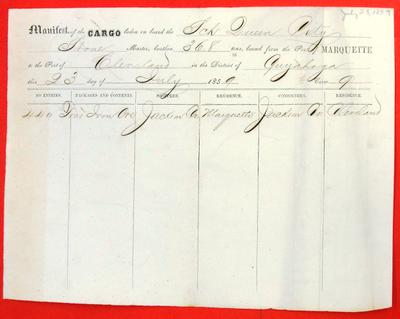 July 23, 1859
Manifest of the CARGO laden on board the Sch Queen City
Stone Master, burthen 368 tons, bound from the Port of MARQUETTE
to the Port of Cleveland in the District of Cuyahoga
this 23 day of July 1859
NO ENTRIES. PACKAGES AND CONTENTS. SHIPPERS. RESIDENCE. CONSIGNEES. RESIDENCE.
440 Tons Iron Ore Jackson Co Marquette Jackson Co Cleveland